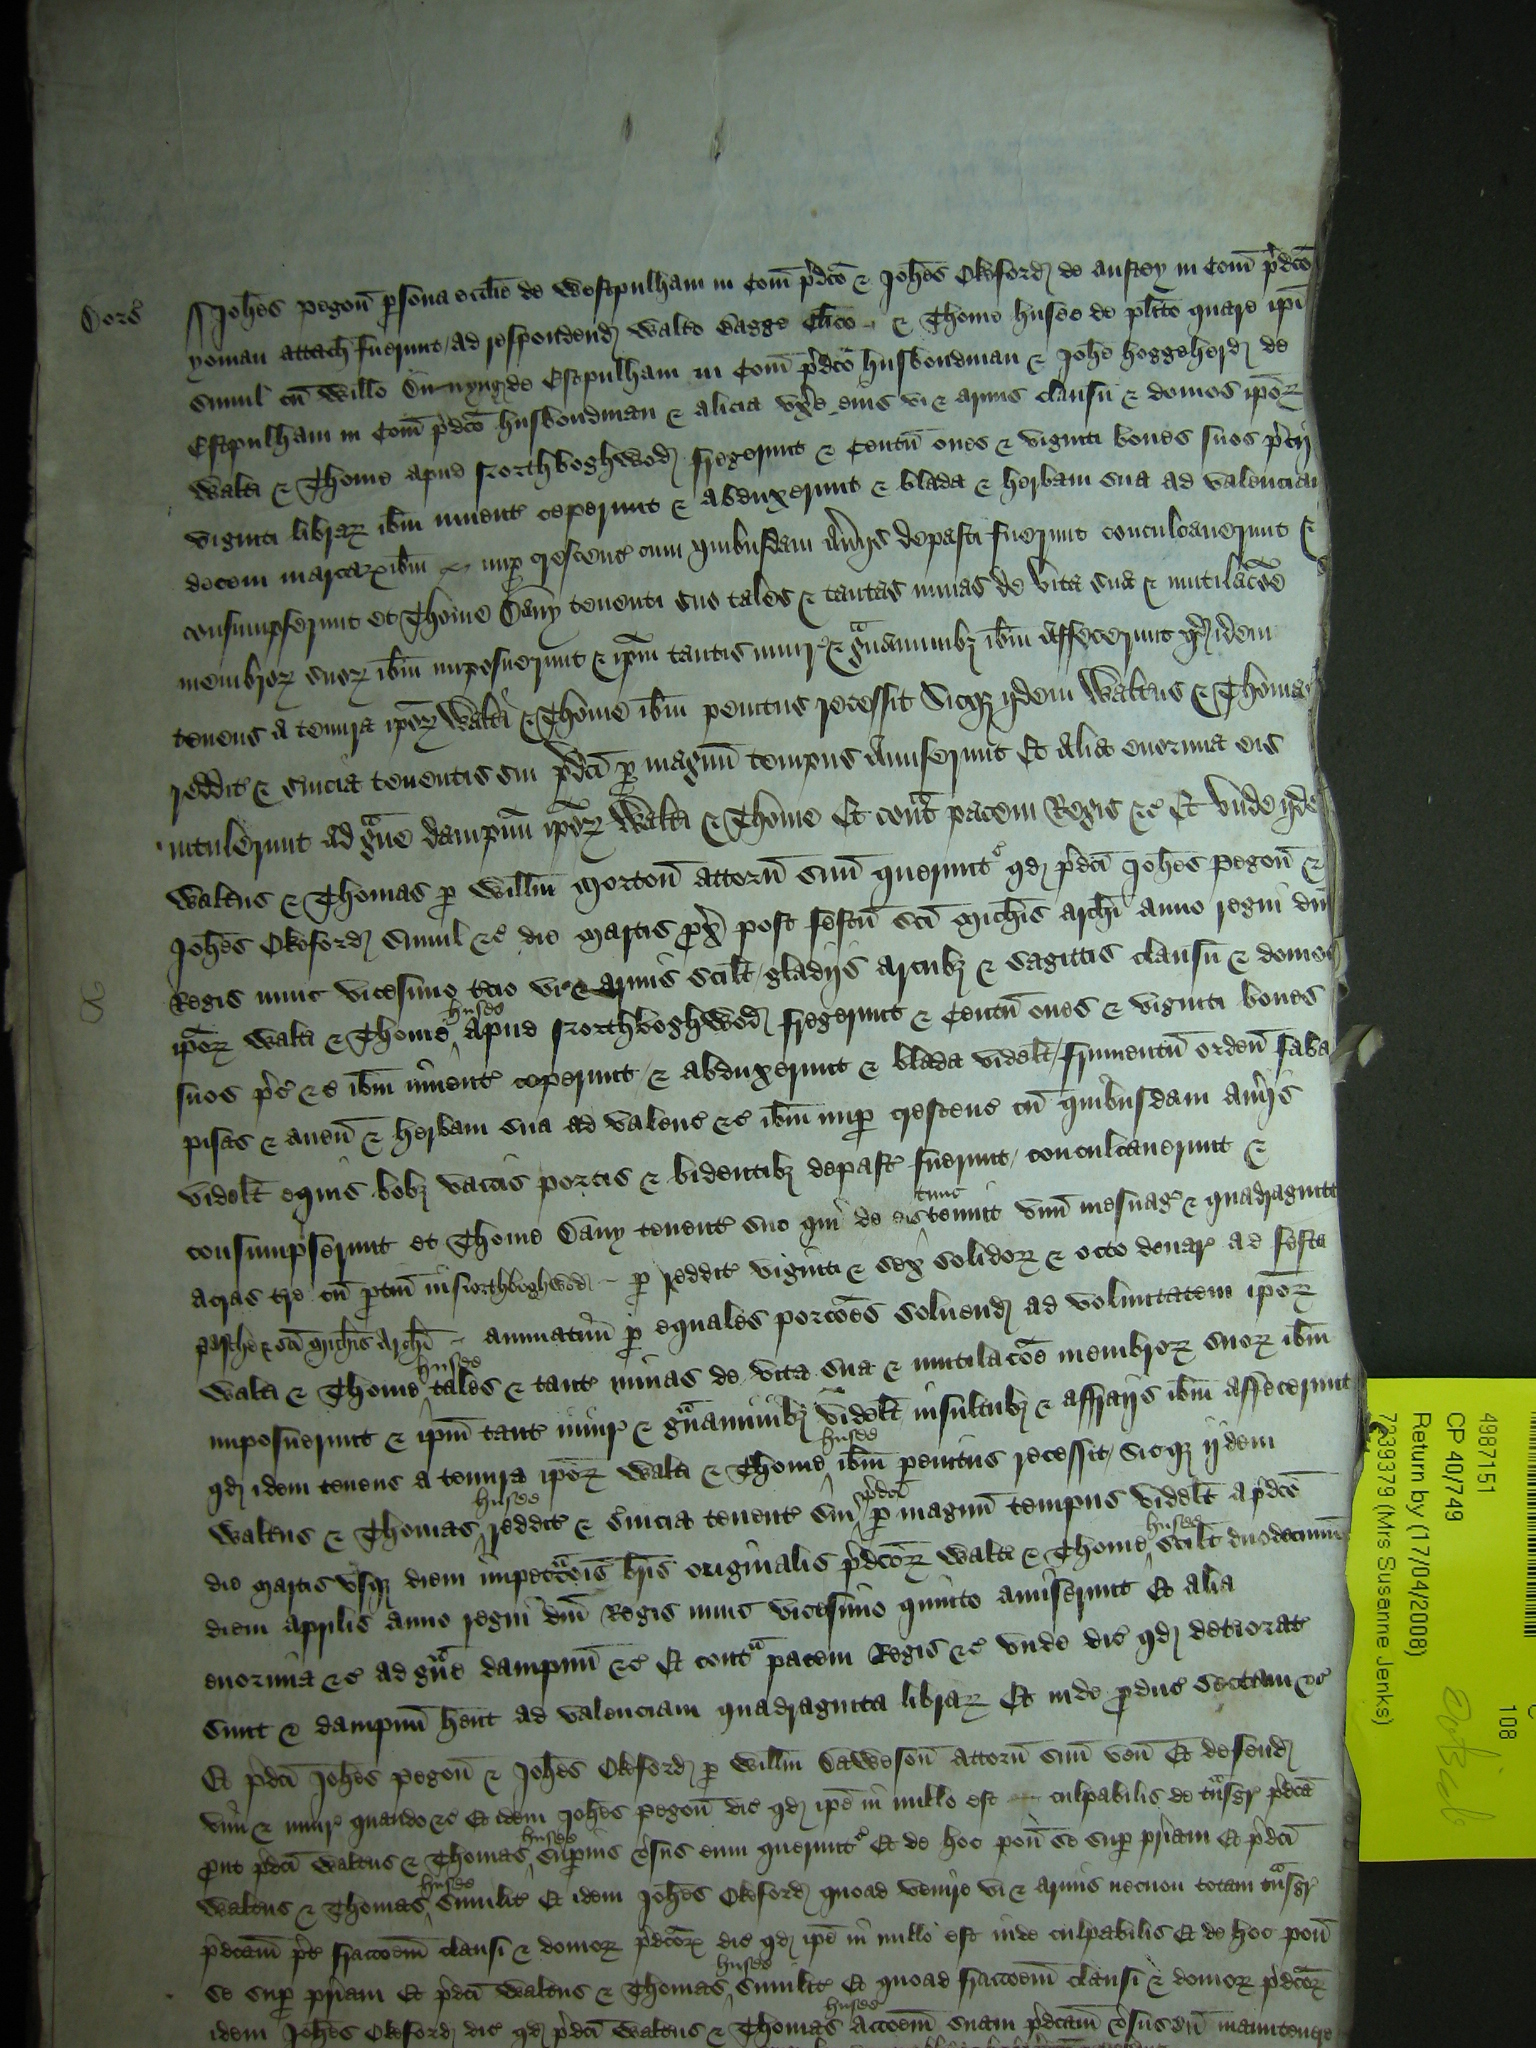 Dors̉ Joh̄es Pegoū p̱sona ecc̄lie de Westpulham in Com̄ p̄dc̄o & Joh̄es Okeford de Anstey in Com̄ p̄dc̄o
yoman attach̄ fuerunt ad respondend Walt̄o Gagge Cl̄ico & Thome Husee de pl̄ito quare ip̄i
simul cū Will̄o de Estpulham in Com̄ p̄dc̄o husbondman & Joh̄e Hoggeherd de
Estpulham in Com̄ p̄dc̄o husbondman & Alicia vx̄e eius vi & armis clausū & domos ip̄oꝝ
Walt̄i & Thome apud Northboghwod fregerunt & Centū oues & viginti boues suos p̄cij
viginti libraꝝ ib̄m inuent̉ ceperunt & abduxerunt & blada & herbam sua ad valenciam
decem marcaꝝ ib̄m nup̱ crescent̉ cum quibusdam aūijs depasti fuerunt conculcauerunt &
consumpserunt et Thome Dauy tenenti suo tales & tantas minas de vita sua & mutilac̄oe
membroꝝ suoꝝ ib̄m imposuerunt & ip̄m tantis iniur̉ & g̊uaminibȝ ib̄m affecerunt qd idem
tenens a tenura ip̄oꝝ Walt̄i & Thome ib̄m penitus recessit Sicqȝ ijdem Walt̄us & Thomas
reddit̉ & s̄uicia tenentis sui p̄dc̄i p̱ magnū tempus amiserunt Et alia enormia eis
intulerunt ad g̊ue dampnū ip̄oꝝ Walt̄i & Thome Et cont̊ pacem Regis &c̉ Et vnde ijdem
Walt̄us & Thomas p̱ Will̄m Mortoū attorn̄ suū querunt̉ qd p̄dc̄i Joh̄es Pegoū &
Joh̄es Okeford simul &c̉ die Martis px̄ post festū sc̄i Mich̄is Arch̄i anno regni dn̄i
Regis nunc vicesimo t̄cio vi & armis scilt̄ gladijs arcubȝ & sagittis clausū & domos
ip̄oꝝ Walt̄i & Thome Husee apud Northboghwod fregerunt & Centū oues & viginti boues
suos p̄c̉ &c̉ ib̄m inuent̉ ceperunt & abduxerunt & blada videlt̄ frumentū ordeū fabas
pisas & auen̄ & herbam sua ad valenc̉ &c̉ ib̄m nup̱ crescenc̉ cū quibusdam aūijs
videlt̄ equis bobȝ vaccis porcis & bidentibȝ depast̉ fuerunt conculcauerunt &
consumpserunt et Thome Dauy tenent̉ suo qui de eis tunc tenuit vnū mesuag̉ & quadraginta
acras t̄re cū p̱tin̄ in Northboghwod p̱ reddit̉ viginti & sex solidoꝝ & octo denar̉ ad festa
Pasche & sc̄i Mich̄is Arch̄i annuatim p̱ equales porc̄oes soluend ad voluntatem ip̄oꝝ
Walt̄i & Thome Husee tales & tant̉ minas de vita sua & mutilac̄oe membroꝝ suoꝝ ib̄m
imposuerunt & ip̄m tant̉ iniur̉ & g̊uaminibȝ videlt̄ insultubȝ & affraijs ib̄m affecerunt
qd idem tenens a tenura ip̄oꝝ Walt̄i & Thome Husee ib̄m penitus recessit Sicqȝ ijdem
Walt̄us & Thomas Husee reddit̉ & s̄uicia tenent̉ sui p̄dc̄i p̱ magnū tempus videlt̄ a p̄dc̄o
die Martis vsqȝ diem impet̊c̄ois br̄is originalis p̄dc̄oꝝ Walt̄i & Thome Husee scilt̄ duodecimū
diem Aprilis anno regni dn̄i Regis nunc vicesimo quinto amiserunt Et alia
enormia &c̉ ad g̊ue dampnū &c̉ Et cont̊ pacem Regis &c̉ vnde dic̉ qd det̉iorat̉
sunt & dampnū hēnt ad valenciam quadraginta libraꝝ Et inde pduc̉ sectam &c̉
Et p̄dc̄i Joh̄es Pegoū & Joh̄es Okeford p̱ Will̄m Dawesoū attorn̄ suū ven̄ Et defend
vim & iniur̉ quando &c̉ Et idem Joh̄es Pegoū dic̉ qd ip̄e in nullo est culpabilis de t̊nsgr̉ p̄dc̄a
put p̄dc̄i Walt̄us & Thomas Husee sup̱ius v̄sus eum querunt̉ Et de hoc pon̄ se sup̱ p̄riam Et p̄dc̄i
Walt̄us & Thomas Husee similit̉ Et idem Joh̄es Okeford quoad venire vi & armis necnon totam t̊nsgr̉
p̄dc̄am p̄t̉ fracc̄oem clausi & domoꝝ p̄dc̄oꝝ dic̉ qd ip̄e in nullo est inde culpabilis Et de hoc pon̄
se sup̱ p̄riam Et p̄dc̄i Walt̄us & Thomas Husee similit̉ Et quoad fracc̄oem clausi & domoꝝ p̄dc̄oꝝ
idem Joh̄es Okeford dic̉ qd p̄dc̄i Walt̄us & Thomas Husee acc̄oem suam p̄dc̄am v̄sus eū manutenere
4987151
CP 40/749
Return by (17/04/2008)
7339379 (Mrs Susanne Jenks)
108